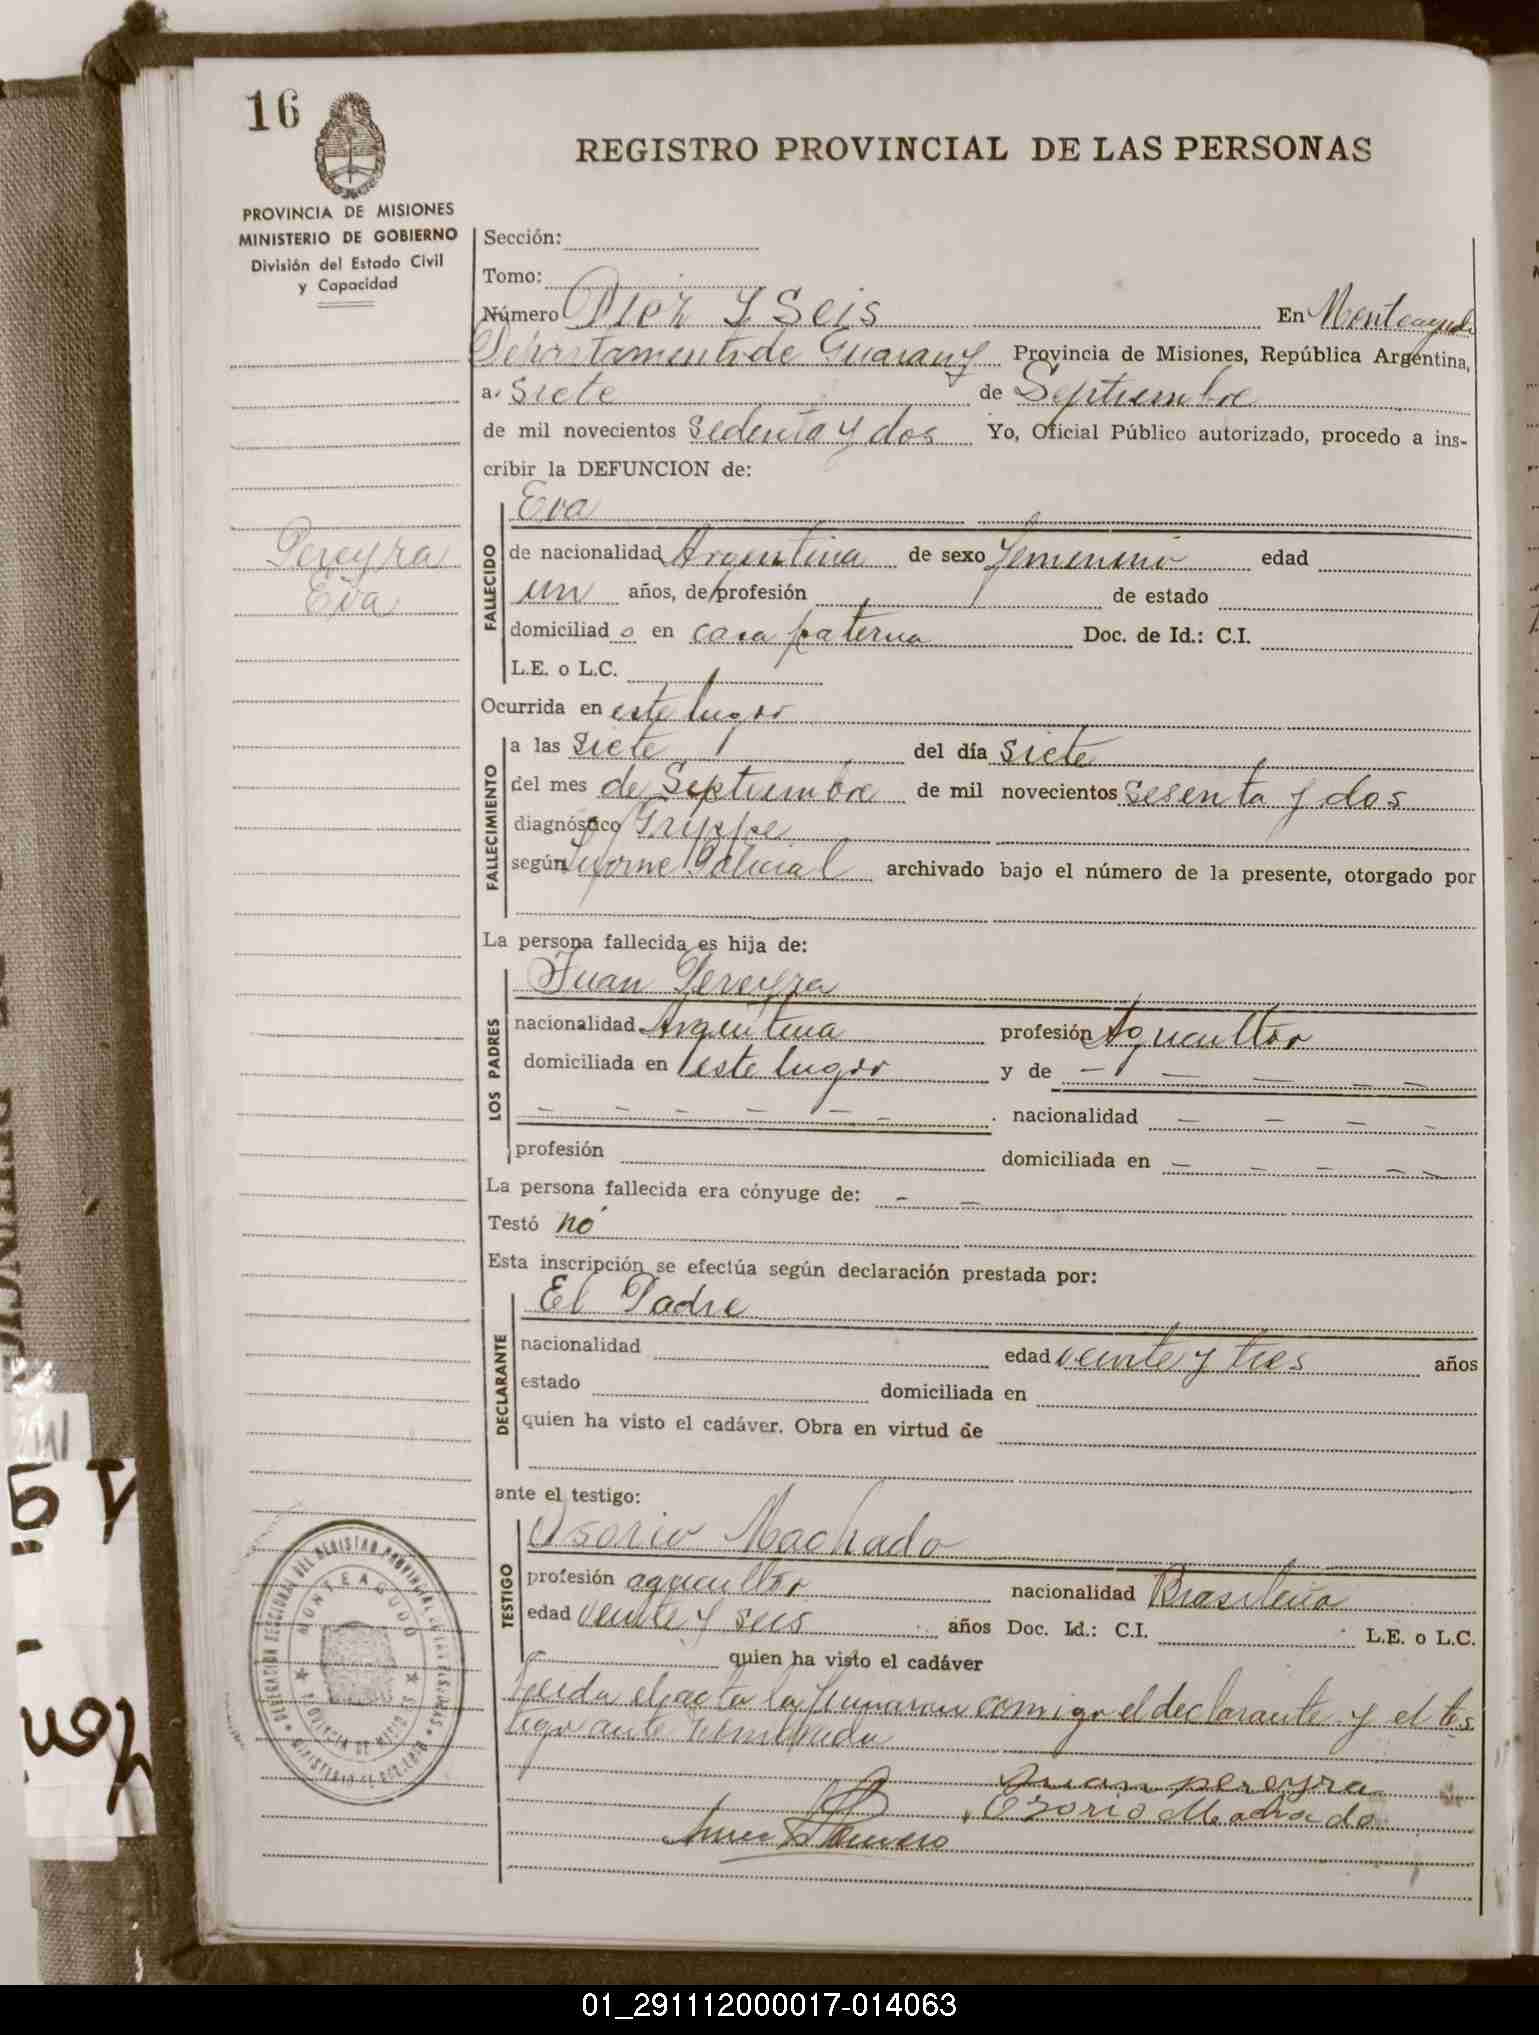 16
REGISTRO PROVINCIAL DE LAS PERSONAS
PROVINCIA DE MISIONES
MINISTERIO DE GOBIERNO
División del Estado Civil
y Capacidad
Sección:
Tomo:
Número Diez y Seis En Monteagudo
Departamento de Guarany Provincia de Misiones, República Argentina,
a siete de Septiembre
de mil novecientos sedenta y dos Yo, Oficial Público autorizado, procedo a ins-
cribir la DEFUNCION de:
Pereyra
Eva
FALLECIDO
Eva
de nacionalidad Argentina de sexo femenino edad
un años, de profesión de estado
domiciliado en casa paterna Doc. de Id.: C.I.
L.E. o L.C.
Ocurrida en este lugar
FALLECIMIENTO
a las siete del día siete
del mes de Septiembre de mil novecientos sesenta y dos
diagnóstico Grippe
según Informe Policial archivado bajo el número de la presente, otorgado por
La persona fallecida es hija de:
LOS PADRES
Juan Pereyra
nacionalidad Argentina profesión Agricultor
domiciliada en este lugar y de — — — — —
— — — — — — . nacionalidad — — — —
profesión domiciliada en — — — — —
La persona fallecida era cónyuge de: — —
Testó no
Esta inscripción se efectúa según declaración prestada por:
DECLARANTE
El Padre
nacionalidad edad veinte y tres años
estado domiciliada en
quien ha visto el cadáver. Obra en virtud de
ante el testigo:
TESTIGO
Osorio Machado
profesión agricultor nacionalidad Brasileña
edad veinte y seis años Doc. Id.: C.I. L.E. o L.C.
quien ha visto el cadáver
Leida el acta la firmaron comigo el declarante y el tes
tigo ante
Juan pereyra
Ozorio Machado
DELEGACION SECCIONAL DEL REGISTRO PROVINCIAL DE LAS PERSONAS
MONTEAGUDO
PROVINCIA DE MISIONES
MINISTERIO DE GOBIERNO
01_291112000017-014063